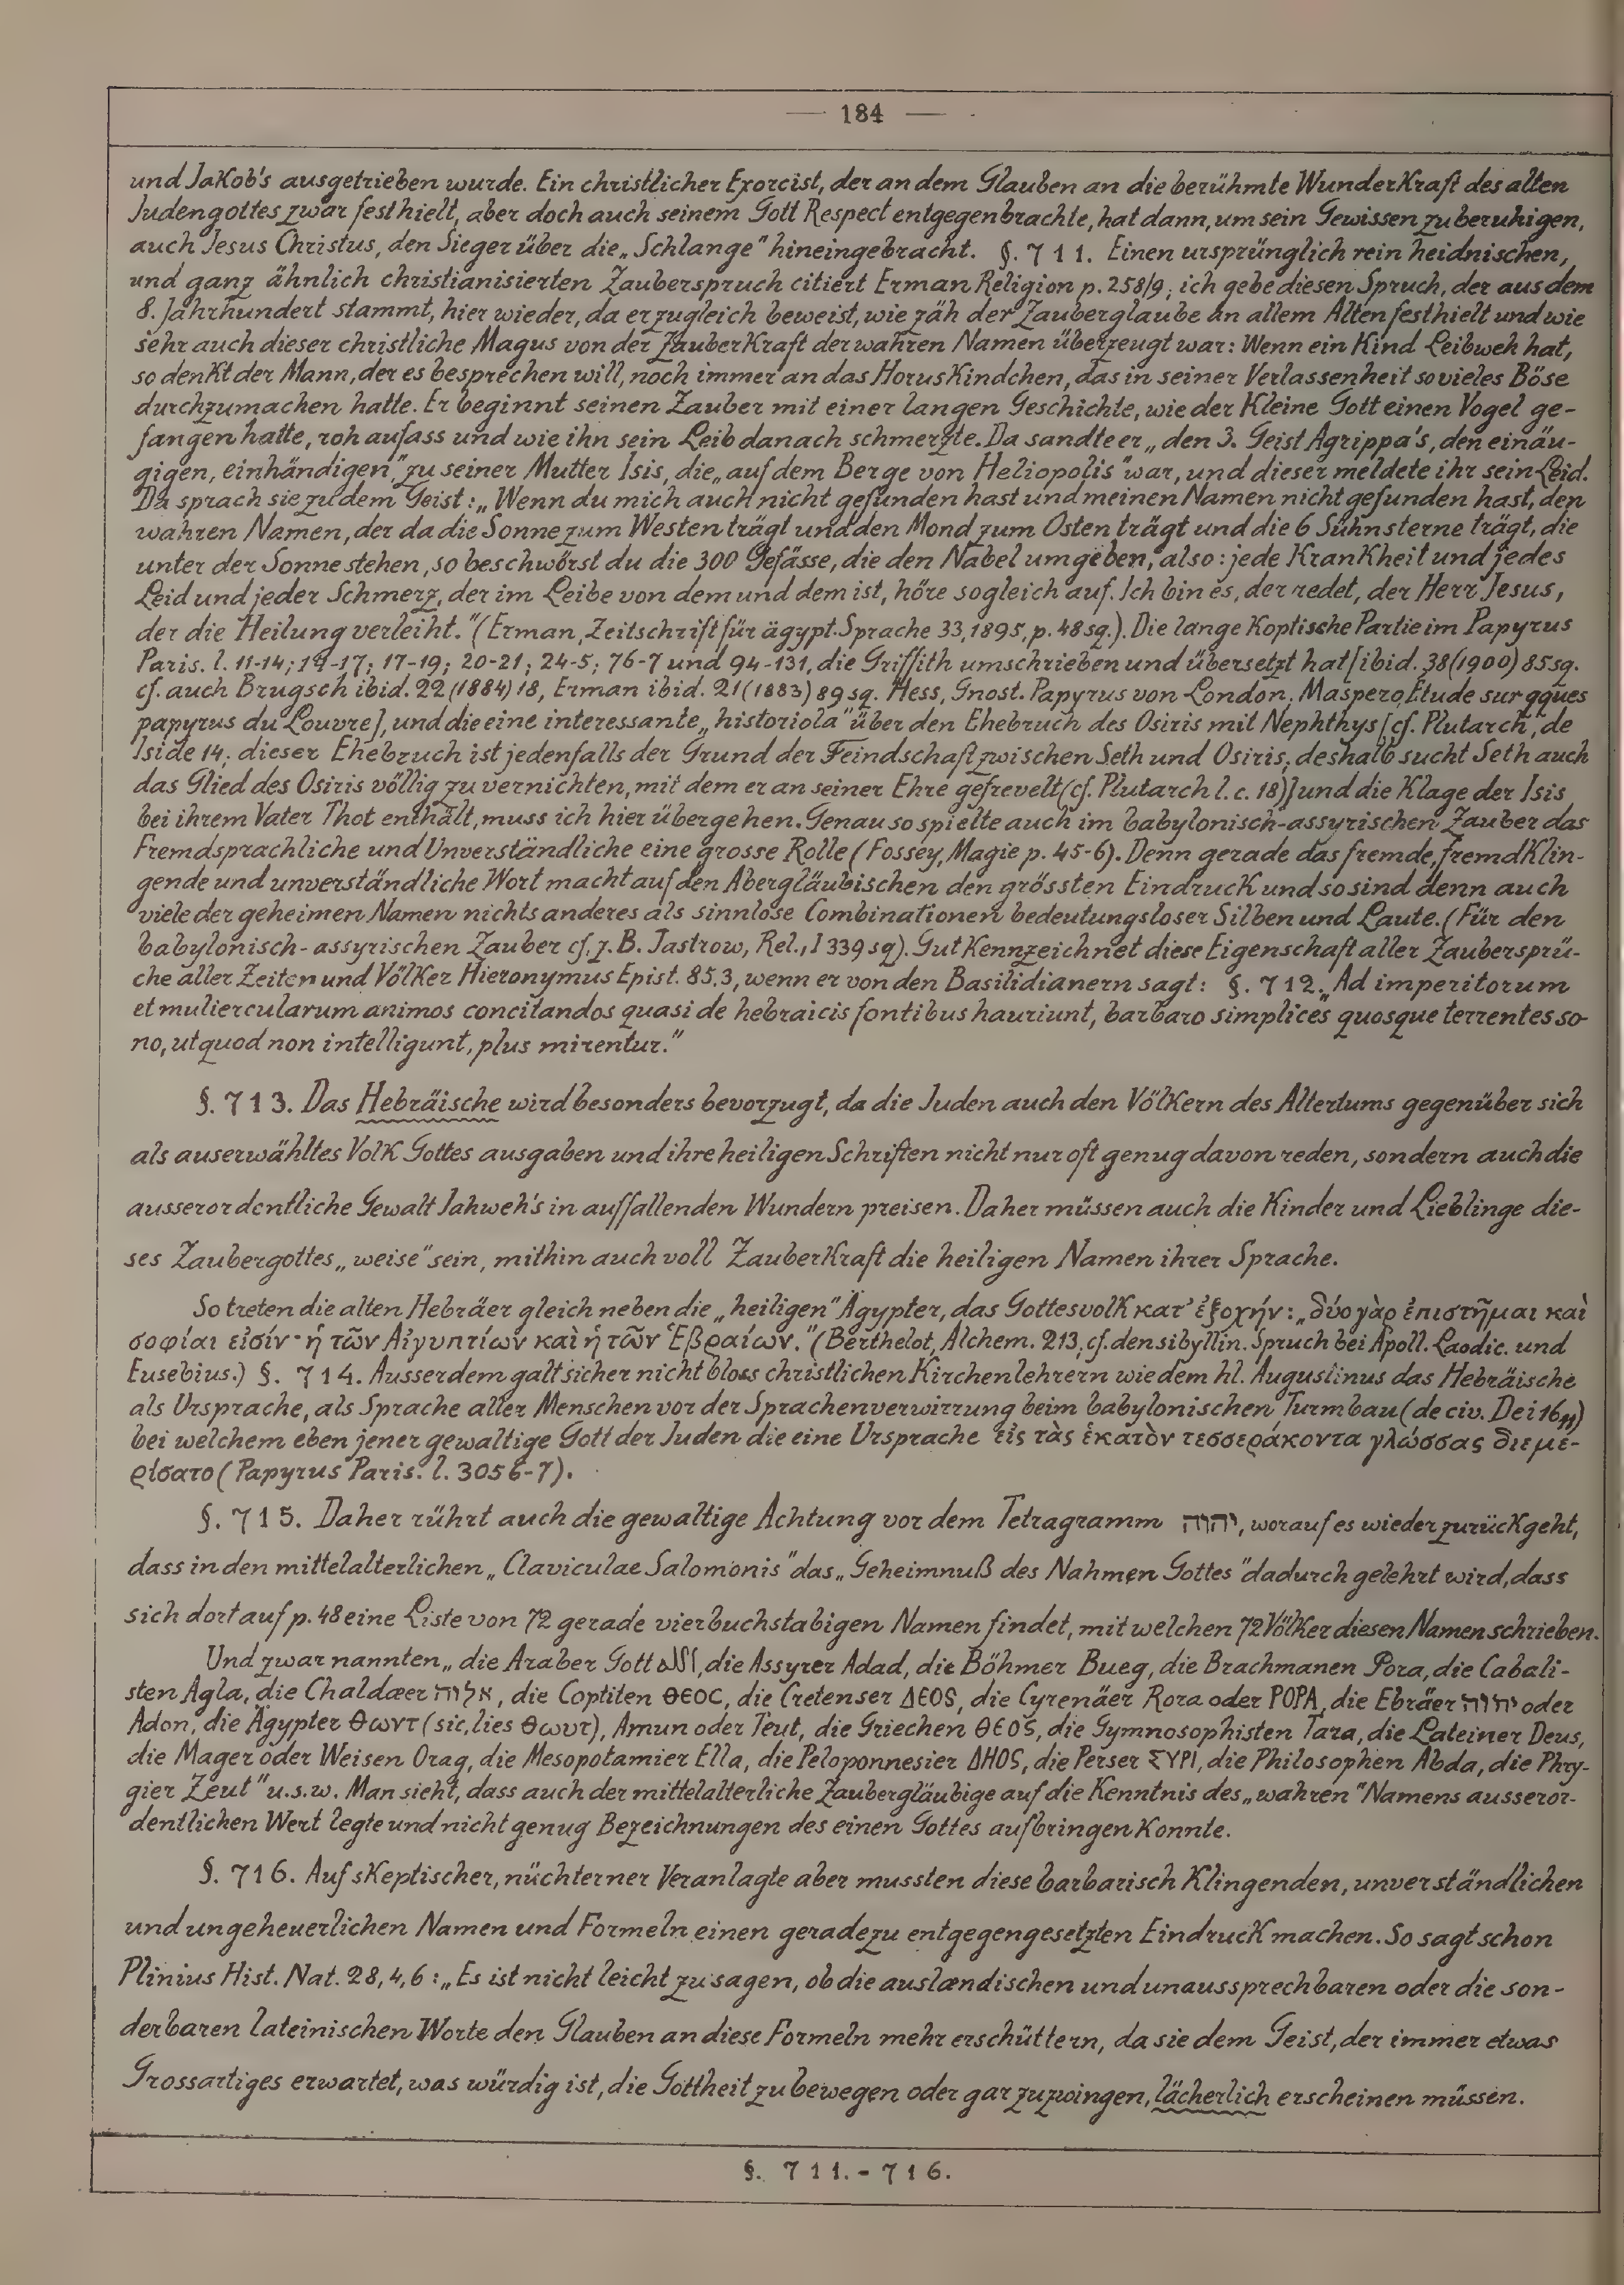 — 184 —
und Jakob's ausgetrieben wurde. Ein christlicher Exorcist, der an dem Glauben an die berühmte Wunderkraft des alten
Judengottes zwar festhielt, aber doch auch seinem Gott Respect entgegenbrachte, hat dann, um sein Gewissen zu beruhigen,
auch Jesus Christus, den Sieger über die „Schlange" hineingebracht. §. 711. Einen ursprünglich rein heidnischen,
und ganz ähnlich christianisierten Zauberspruch citiert Erman Religion p. 258/9; ich gebe diesen Spruch, der aus dem
8. Jahrhundert stammt, hier wieder, da er zugleich beweist, wie zäh der Zauberglaube an allem Alten festhielt und wie
sehr auch dieser christliche Magus von der Zauberkraft der wahren Namen überzeugt war: Wenn ein Kind Leibweh hat,
so denkt der Mann, der es besprechen will, noch immer an das Horuskindchen, das in seiner Verlassenheit so vieles Böse
durchzumachen hatte. Er beginnt seinen Zauber mit einer langen Geschichte, wie der kleine Gott einen Vogel ge-
fangen hatte, roh aufass und wie ihn sein Leib danach schmerzte. Da sandte er „den 3. Geist Agrippa's, den einäu-
gigen, einhändigen" zu seiner Mutter Isis, die „auf dem Berge von Heliopolis" war, und dieser meldete ihr sein Leid.
Da sprach sie zu dem Geist: „Wenn du mich auch nicht gefunden hast und meinen Namen nicht gefunden hast, den
wahren Namen, der da die Sonne zum Westen trägt und den Mond zum Osten trägt und die 6 Sühnsterne trägt, die
unter der Sonne stehen, so beschwörst du die 300 Gefässe, die den Nabel umgeben, also: jede Krankheit und jedes
Leid und jeder Schmerz, der im Leibe von dem und dem ist, höre sogleich auf. Ich bin es, der redet, der Herr Jesus,
der die Heilung verleiht." (Erman, Zeitschrift für ägypt. Sprache 33, 1895, p. 48 sq.). Die lange Koptische Partie im Papyrus
Paris. l. 11-14; 14-17; 17-19; 20-21; 24-5; 76-7 und 94-131, die Griffith umschrieben und übersetzt hat [ibid. 38 (1900) 85 sq.
cf. auch Brugsch ibid. 22 (1884) 18, Erman ibid. 21 (1883) 89 sq. Hess, Gnost. Papyrus von London, Maspero, Etude sur qques
papyrus du Louvre], und die eine interessante „historiola" über den Ehebruch des Osiris mit Nephthys [cf. Plutarch, de
Iside 14; dieser Ehebruch ist jedenfalls der Grund der Feindschaft zwischen Seth und Osiris; deshalb sucht Seth auch
das Glied des Osiris völlig zu vernichten, mit dem er an seiner Ehre gefrevelt (cf. Plutarch l. c. 18)] und die Klage der Isis
bei ihrem Vater Thot enthält, muss ich hier übergehen. Genau so spielte auch im babylonisch-assyrischen Zauber das
Fremdsprachliche und Unverständliche eine grosse Rolle (Fossey, Magie p. 45-6). Denn gerade das fremde, fremdklin-
gende und unverständliche Wort macht auf den Abergläubischen den grössten Eindruck und so sind denn auch
viele der geheimen Namen nichts anderes als sinnlose Combinationen bedeutungsloser Silben und Laute. (Für den
babylonisch-assyrischen Zauber cf. z. B. Jastrow, Rel., I 339 sq). Gut kennzeichnet diese Eigenschaft aller Zaubersprü-
che aller Zeiten und Völker Hieronymus Epist. 85,3, wenn er von den Basilidianern sagt: §. 712. „Ad imperitorum
et muliercularum animos concitandos quasi de hebraicis fontibus hauriunt, barbaro simplices quosque terrentes so-
no, ut quod non intelligunt, plus mirentur."
§. 713. Das Hebräische wird besonders bevorzugt, da die Juden auch den Völkern des Altertums gegenüber sich
als auserwähltes Volk Gottes ausgaben und ihre heiligen Schriften nicht nur oft genug davon reden, sondern auch die
ausserordentliche Gewalt Jahweh's in auffallenden Wundern preisen. Daher müssen auch die Kinder und Lieblinge die-
ses Zaubergottes „weise" sein, mithin auch voll Zauberkraft die heiligen Namen ihrer Sprache.
So treten die alten Hebräer gleich neben die „heiligen" Ägypter, das Gottesvolk κατ' ἐξοχήν: „δύο γὰρ ἐπιστῆμαι καὶ
σοφίαι εἰσίν· ἡ τῶν Αἰγυπτίων καὶ ἡ τῶν Ἑβραίων." (Berthelot, Alchem. 213, cf. den sibyllin. Spruch bei Apoll. Laodic. und
Eusebius.) §. 714. Ausserdem galt sicher nicht bloss christlichen Kirchenlehrern wie dem hl. Augustinus das Hebräische
als Ursprache, als Sprache aller Menschen vor der Sprachenverwirrung beim babylonischen Turmbau (de civ. Dei 16,11)
bei welchem eben jener gewaltige Gott der Juden die eine Ursprache εἰς τὰς ἑκατὸν τεσσεράκοντα γλώσσας διεμέ-
ρίσατο (Papyrus Paris. l. 3056-7).
§. 715. Daher rührt auch die gewaltige Achtung vor dem Tetragramm יהוה, worauf es wieder zurückgeht,
dass in den mittelalterlichen „Claviculae Salomonis" das „Geheimnuß des Nahmen Gottes" dadurch gelehrt wird, dass
sich dort auf p. 48 eine Liste von 72 gerade vierbuchstabigen Namen findet, mit welchen 72 Völker diesen Namen schrieben.
Und zwar nannten „die Araber Gott الله, die Assyrer Adad, die Böhmer Bueg, die Brachmanen Pora, die Cabali-
sten Agla, die Chaldæer אלוה, die Coptiten ΘΕΟC, die Cretenser ΔEOS, die Cyrenäer Rora oder POPA, die Ebräer יהוה oder
Adon, die Ägypter Θωντ (sic, lies Θωυτ), Amun oder Teut, die Griechen ΘΕΟS, die Gymnosophisten Tara, die Lateiner Deus,
die Mager oder Weisen Orag, die Mesopotamier Ella, die Peloponnesier ΔHOS, die Perser ΣΥΡΙ, die Philosophen Abda, die Phry-
gier Zeut" u.s.w. Man sieht, dass auch der mittelalterliche Zaubergläubige auf die Kenntnis des „wahren" Namens ausseror-
dentlichen Wert legte und nicht genug Bezeichnungen des einen Gottes aufbringen konnte.
§. 716. Auf skeptischer, nüchterner Veranlagte aber mussten diese barbarisch klingenden, unverständlichen
und ungeheuerlichen Namen und Formeln einen geradezu entgegengesetzten Eindruck machen. So sagt schon
Plinius Hist. Nat. 28, 4, 6: „Es ist nicht leicht zu sagen, ob die auslændischen und unaussprechbaren oder die son-
derbaren lateinischen Worte den Glauben an diese Formeln mehr erschüttern, da sie dem Geist, der immer etwas
Grossartiges erwartet, was würdig ist, die Gottheit zu bewegen oder gar zu zwingen, lächerlich erscheinen müssen.
§. 711.-716.